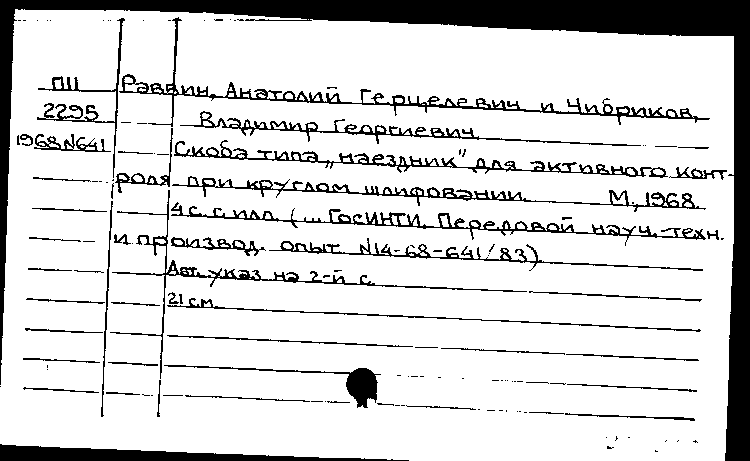 П11 Раввин, Анатолий Герцелевич и Чибриков,
2295 Владимир Георгиевич
1968N641 Скоба типа „наездник" для активного конт-
роля при круглом шлифовании. М., 1968.
4 с. с илл. (... ГосИНТИ. Передовой науч.-техн.
и производ. опыт N14-68-641/83)
Авт. указ. на 2-й с.
21 см.